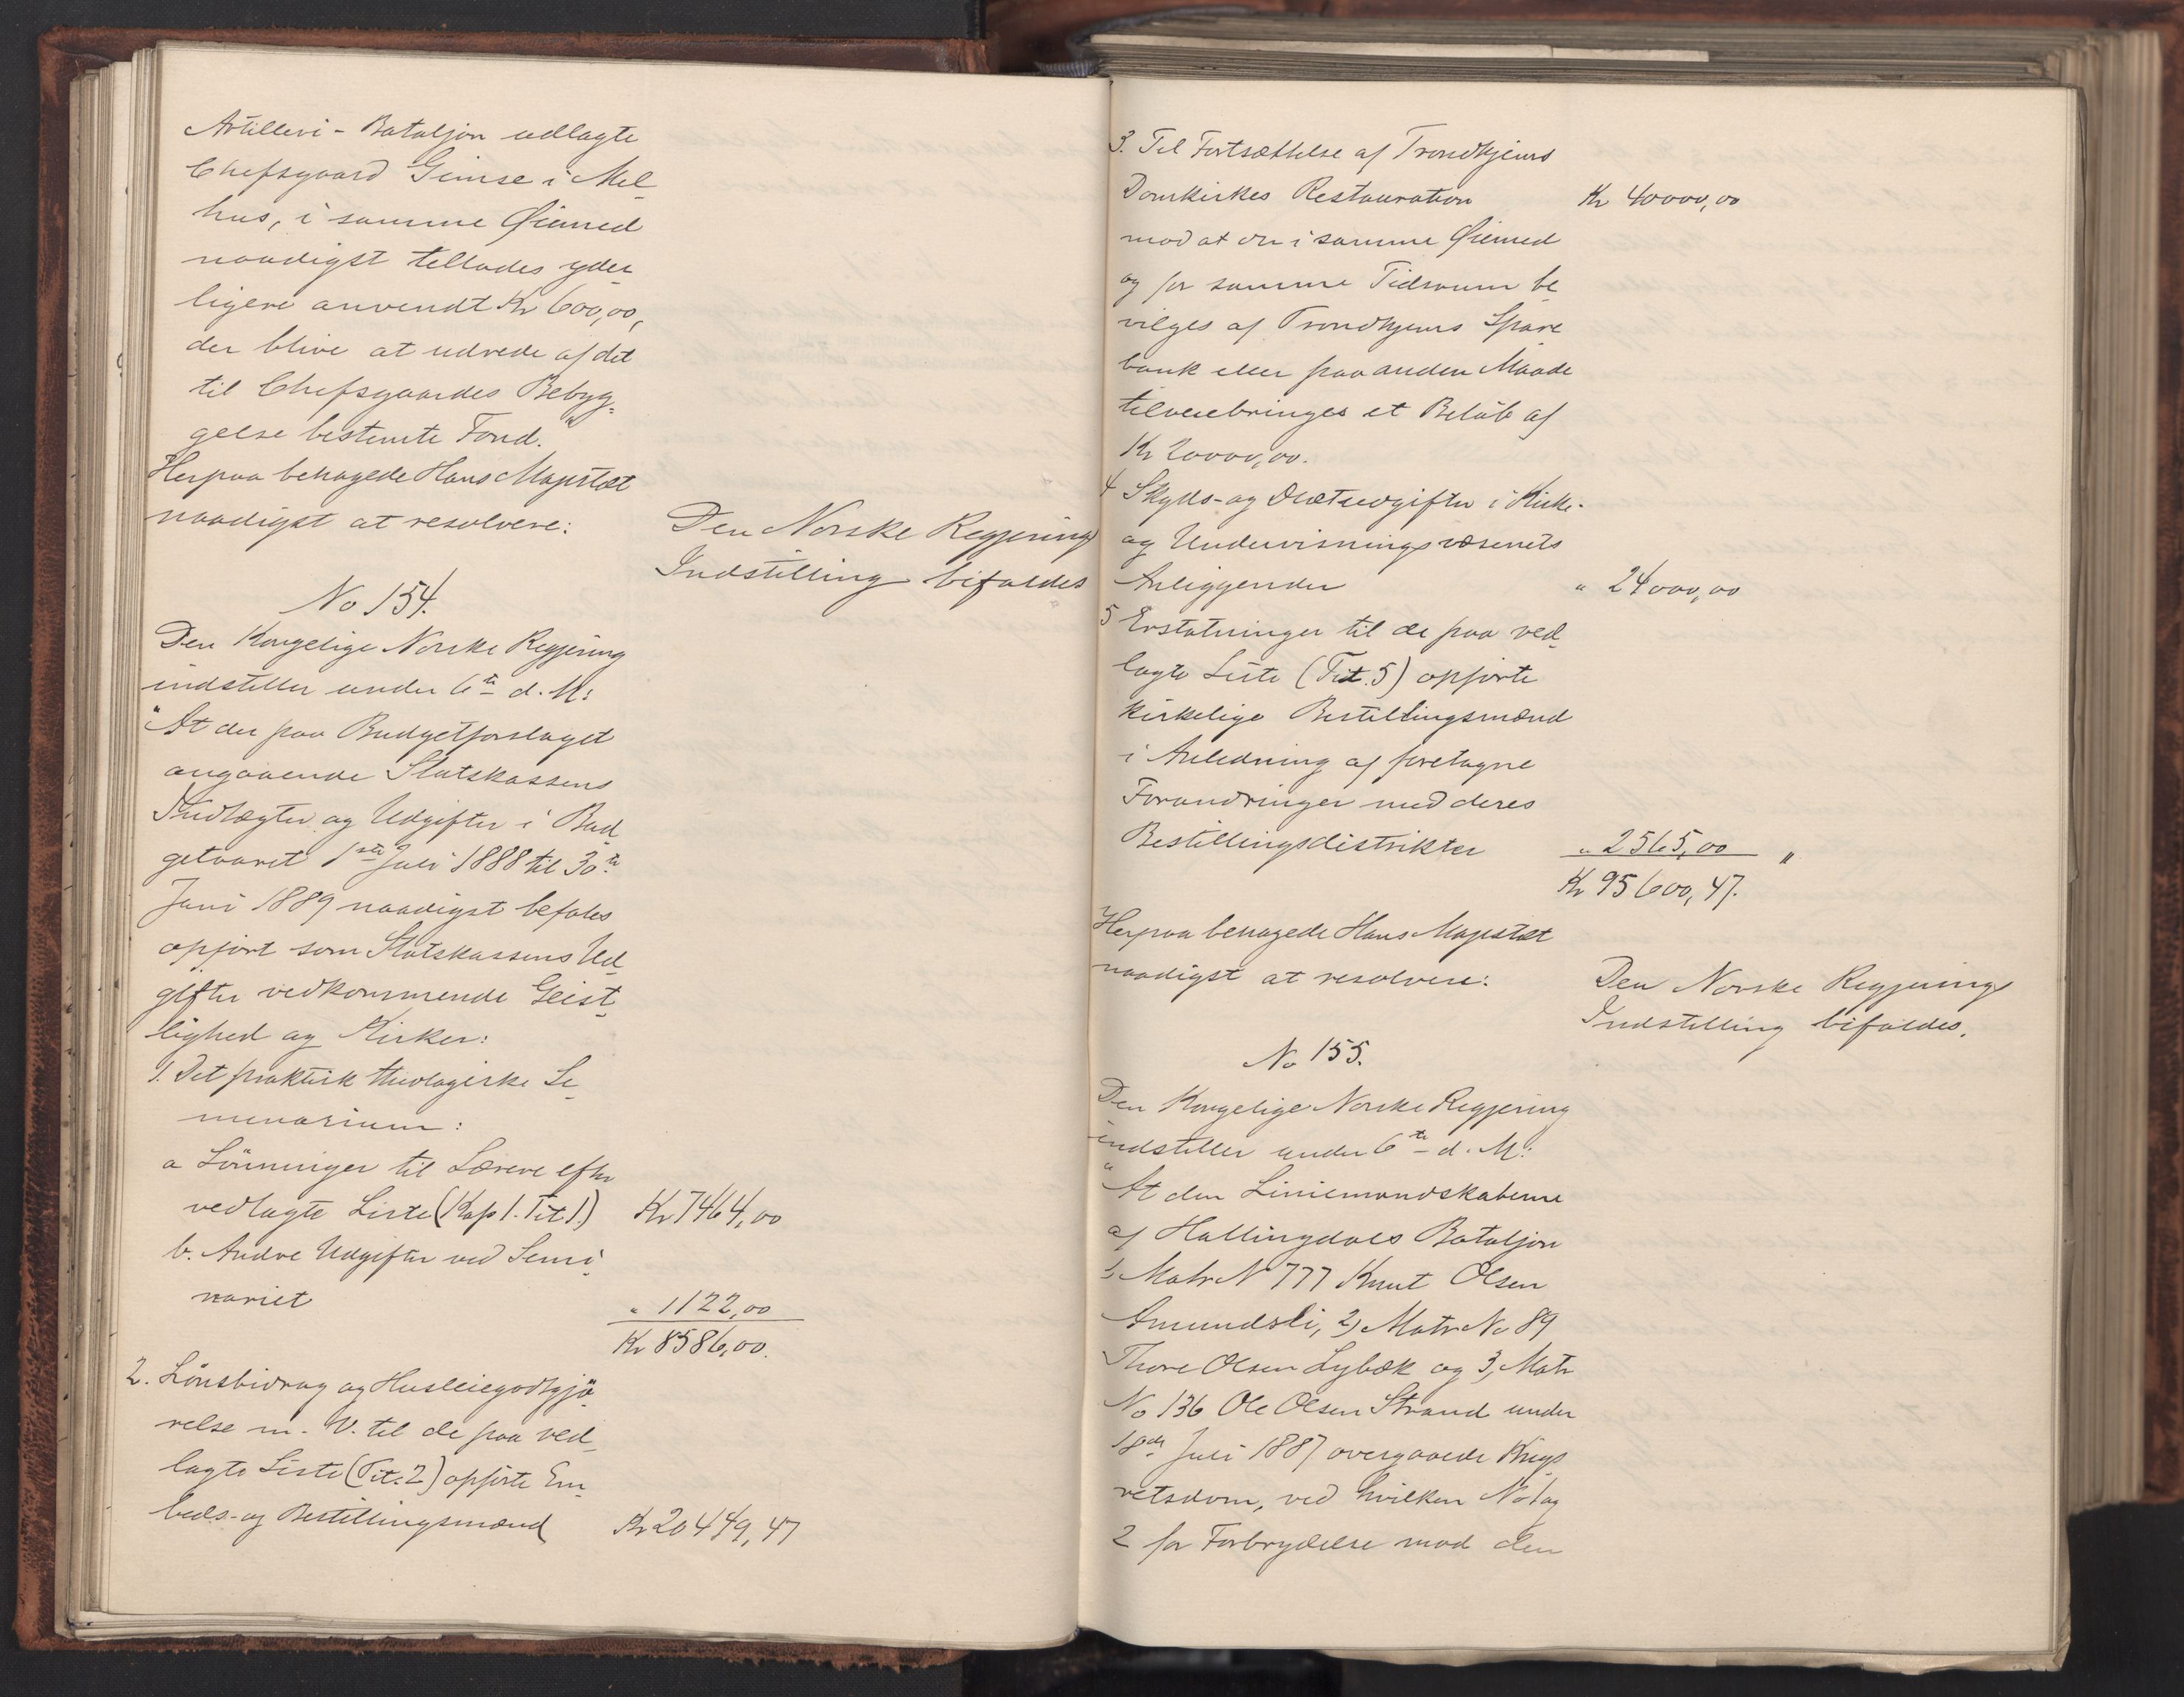 Artilleri-Bataljon udlagte
Chefsgaard Gimse i Mel-
hus, i samme Øiemed
naadigst tillades yder-
ligere anvendt Kr 600,00,
der blive at udrede af det
til Chefsgaardes Bebyg-
gelse bestemte Fond."
Herpaa behagede Hans Majestæt
naadigst at resolvere:
Den Norske Regjerings
Indstilling bifaldes
No 154.
Den Kongelige Norske Regjering
indstiller under 6te d. M:
"At der paa Budgetforslaget
angaaende Statskassens
Indtægter og Udgifter i Bud-
getaaret 1ste Juli 1888 til 30te
Juni 1889 naadigst befales
opført som Statskassens Ud-
gifter vedkommende Geist-
lighed og Kirker:
1. Det praktisk theologiske Se-
menarium:
a Lønninger til Lærere efter
vedlagte Liste (Kap 1. Tit 1.) Kr 7464,00
b. Andre Udgifter ved Semi-
nariet " 1122,00
Kr 8586,00.
2. Lønsbidrag og Husleiegodtgjø-
relse m. V. til de paa ved-
lagte Liste (Tit: 2) opførte Em-
beds- og Bestillingsmænd Kr 20449,47
3. Til Fortsættelse af Trondhjems
Domkirkes Restauration Kr 40000,00
mod at der i samme Øiemed
og for samme Tidsrum be-
vilges af Trondhjems Spare
bank eller paa anden Maade
tilveiebringes et Beløb af
Kr 20000,00.
4 Skyds- og Diætudgifter i Kirke-
og Undervisningsvæsenets
Anliggender " 24000,00
5 Erstatninger til de paa ved-
lagte Liste (Tit. 5) opførte
kirkelige Bestillingsmænd
i Anledning af foretagne
Forandringer med deres
Bestillingsdistrikter " 2565,00 "
Kr 95600,47.
Herpaa behagede Hans Majestæt
naadigst at resolvere:
Den Norske Regjerings
Indstilling bifaldes.
No 155.
Den Kongelige Norske Regjering
indstiller under 6te d. M:
"At den Liniemandskaberne
af Hallingdals Bataljon
1, Matr N 777 Knut Olsen
Amundsli, 2) Matr No 89
Thore Olsen Lybæk og 3, Matr
No 136 Ole Olsen Strand under
18de Juli 1887 overgaaede Krigs
retsdom, ved hvilken No 1 og
2 for Forbrydelse mod den